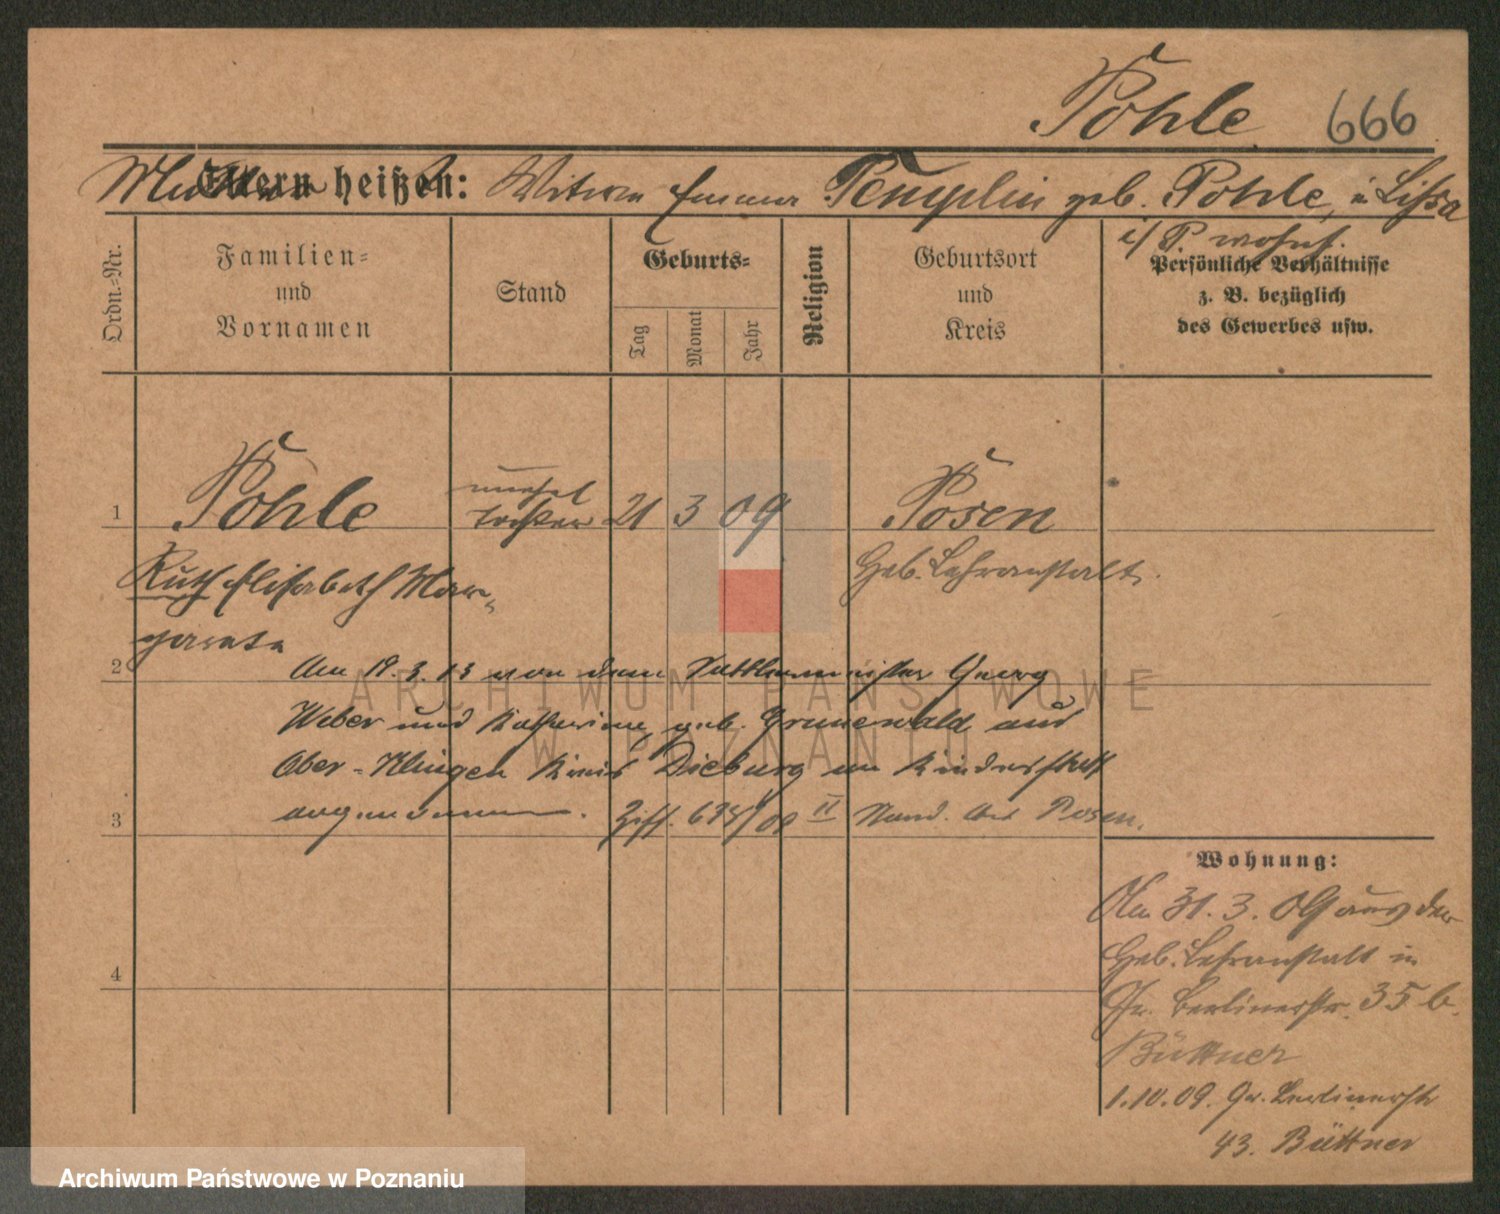 Pohle 666
Mutter Eltern heißen: Witwe Emma Templin geb. Pohle, in Lissa
i/P. wohnh.
Ordn.-Nr.
Familien-
und
Vornamen
Stand
Geburts-
Tag
Monat
Jahr
Religion
Geburtsort
und
Kreis
Persönliche Verhältnisse
z. B. bezüglich
des Gewerbes usw.
unehel
1 Pohle Tochter 21 3 09 Posen
Heb. Lehranstalt.
Ruth Elisabeth Mar-
gareta
2 Am 19.3.13 von dem Georg
Weber und Katharine, geb. Grunewald aus
Ober-Klingen Kreis Dieburg an Kindesstatt
3 angenommen. II Stand. Amt Posen.
Wohnung:
Am 31.3.09 aus der
Heb. Lehranstalt in
4
Gr. Berlinerstr. 35 b.
Büttner
1.10.09. Gr. Berlinerstr
43. Büttner
ARCHIWUM PAŃSTWOWE
W POZNANIU
Archiwum Państwowe w Poznaniu